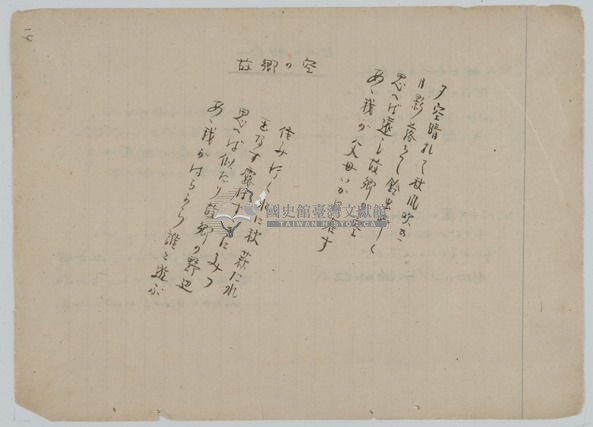 故郷の空
夕空晴れて秋風吹き
月影落ちて鈴虫鳴く
思へば遠し故郷の空
あゝ我が父母いかに在す
すみ行く水に秋萩たれ
玉なす露は すゝにみつ
思へば似たり故郷の野辺
あゝ我がはらから誰と遊ぶ
國史館臺灣文獻館
TAIWAN HISTORICA